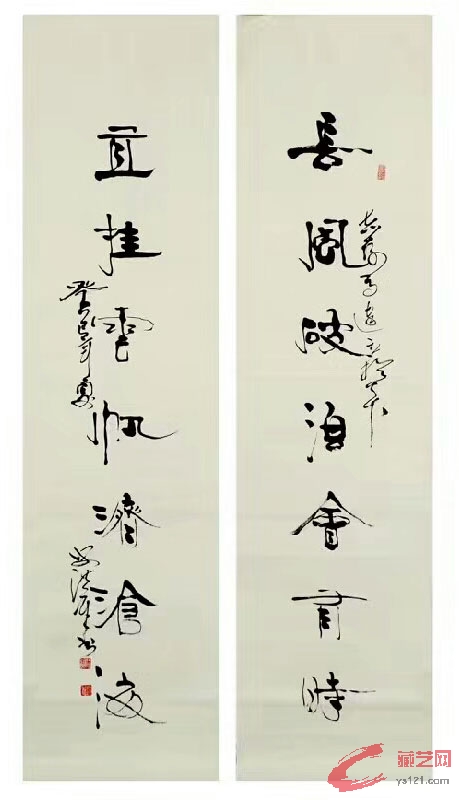 長風破浪會有時
直挂雲帆濟滄海
癸巳年夏
藏艺网
ys121.com